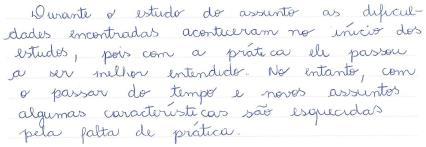 Durante o estudo do assunto as dificul-
dades encontradas aconteceram no início dos
estudos, pois com a prática ele passou
a ser melhor entendido. No entanto, com
o passar do tempo e novos assuntos
algumas características são esquecidas
pela falta de prática.